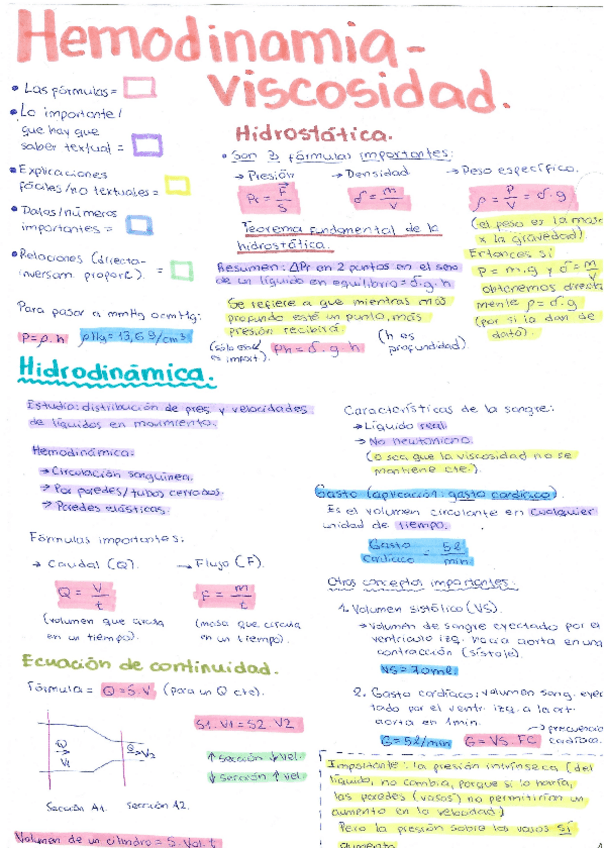 Hemodinamia-
viscosidad.
• Las fórmulas=
• Lo importante/
que hay que
saber textual =
• Explicaciones
fáciles/no textuales=
• Datos/números
importantes =
• Relaciones (directa-
inversam. proporc) =
Para pasar a mmHg o cmHg:
P=ρ.h ρHg=13,6 g/cm³
Hidrostática.
• Son 3 fórmulas importantes:
→ Presión → Densidad → Peso específico.
Pr = F/S
δ = m/V
ρ = P/V = δ.g
(el peso es la masa
x la gravedad)
Entonces si
P = m.g y δ = m/V
obtenemos directa
mente ρ = δ.g
(por si la dan de
dato).
Teorema fundamental de la
hidrostática.
Resumen: ΔPr en 2 puntos en el seno
de un líquido en equilibrio = δ.g.h
Se refiere a que mientras más
profundo esté un punto, más
presión recibirá.
Ph = δ.g.h
(h es
profundidad)
Hidrodinámica.
Estudia: distribución de pres. y velocidades
de líquidos en movimiento.
Hemodinámica:
→ Circulación sanguínea.
→ Por paredes/tubos cerrados.
→ Paredes elásticas.
Fórmulas importantes:
→ Caudal (Q). → Flujo (F).
Q = V/t
F = m/t
(volumen que circula
en un tiempo).
(masa que circula
en un tiempo).
Ecuación de continuidad.
Fórmula = Q=S.V (para un Q cte).
S1.V1=S2.V2
↑ sección ↓ vel.
↓ sección ↑ vel.
V1
V2
Sección A1. Sección A2.
Volumen de un cilindro = S.Vol.t
Características de la sangre:
→ Líquido real
→ No neutoniano.
(o sea que la viscosidad no se
mantiene cte).
Gasto (aplicación: gasto cardíaco).
Es el volumen circulante en cualquier
unidad de tiempo.
Gasto Cardíaco = 5l/min
Otros conceptos importantes:
1. Volumen sistólico (VS).
→ volumen de sangre eyectado por el
ventrículo izq. hacia aorta en una
contracción (sístole).
VS=70ml.
2. Gasto cardíaco: volumen sang. eyec
tado por el ventr. izq. a la art.
aorta en 1min.
G=5l/min G=VS.FC → frecuencia
cardíaca.
Importante: la presión intrínseca (del
líquido, no cambia, porque si lo haría,
las paredes (vasos) no permitirían un
aumento en la velocidad)
Pero la presión sobre los vasos SÍ
aumenta